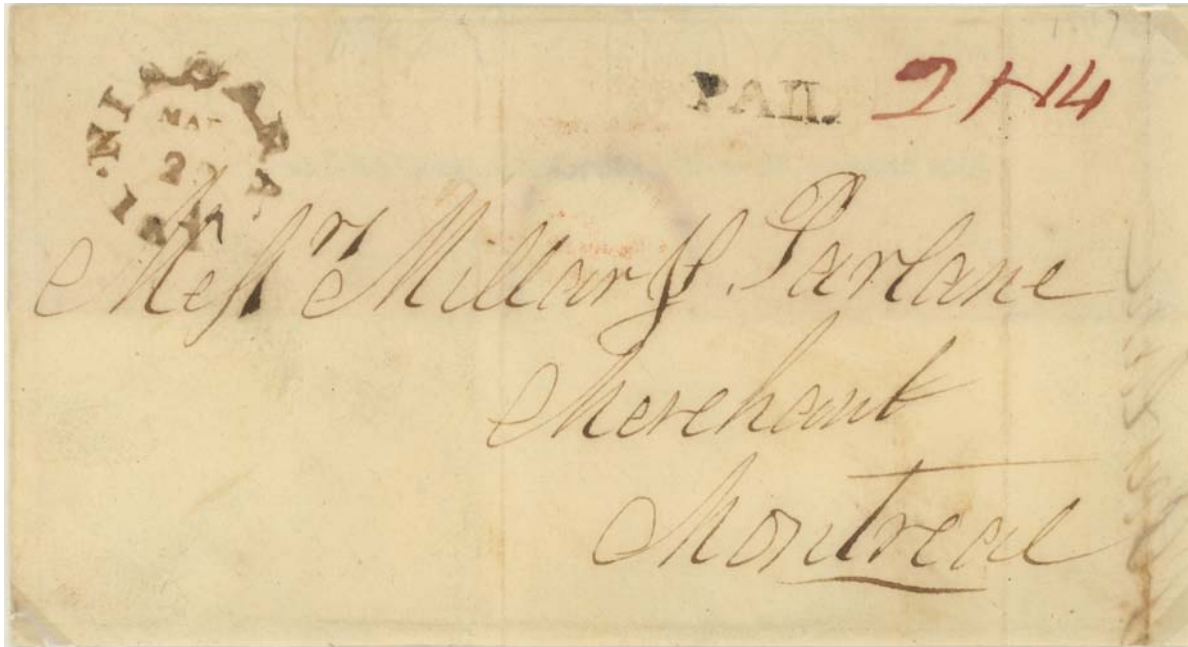 NIAGARA
PAID 2N4
Messrs Millar & Parlane
Merchant
Montreal